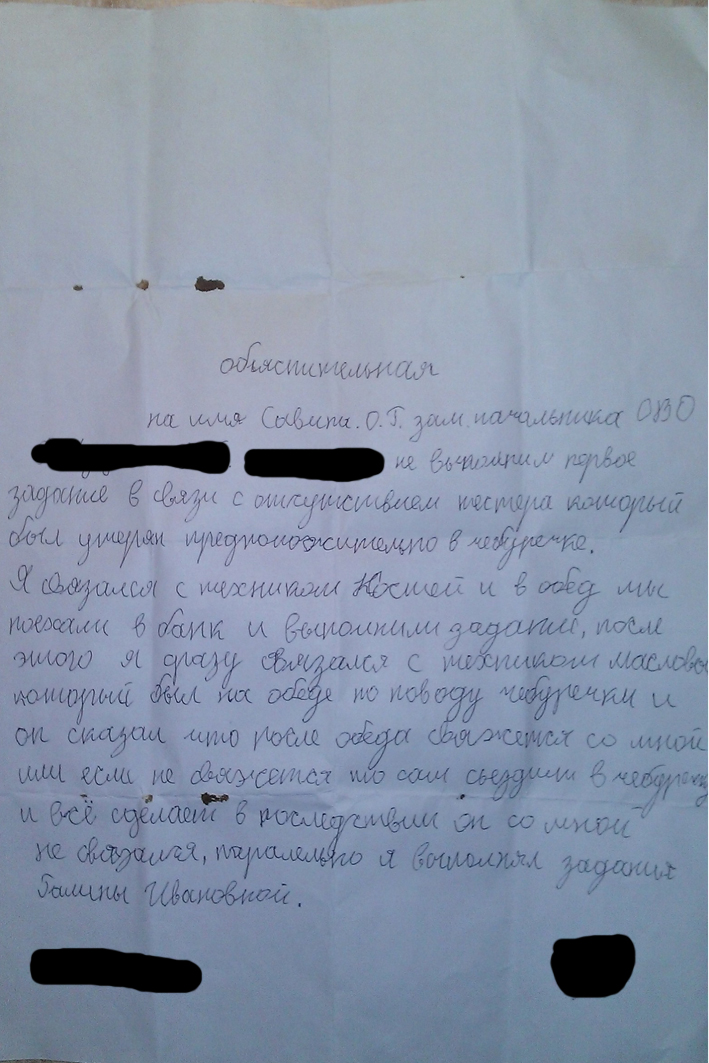 объяснительная
на имя Савина. О.Г. зам. начальника ОВО
не выполнил первое
задание в связи с отсутствием тестера который
был утерян предположительно в чебуречке.
Я связался с техником Костей и в обед мы
поехали в банк и выполнили заданий, после
этого я сразу связался с техником масловы
который был на обеде по поводу чебуречки и
он сказал что после обеда свяжется со мной
или если не свяжется то сам съездит в чебуречку
и всё сделает в последствии он со мной
не связался, паралельно я выполнял задания
Галины Ивановной.